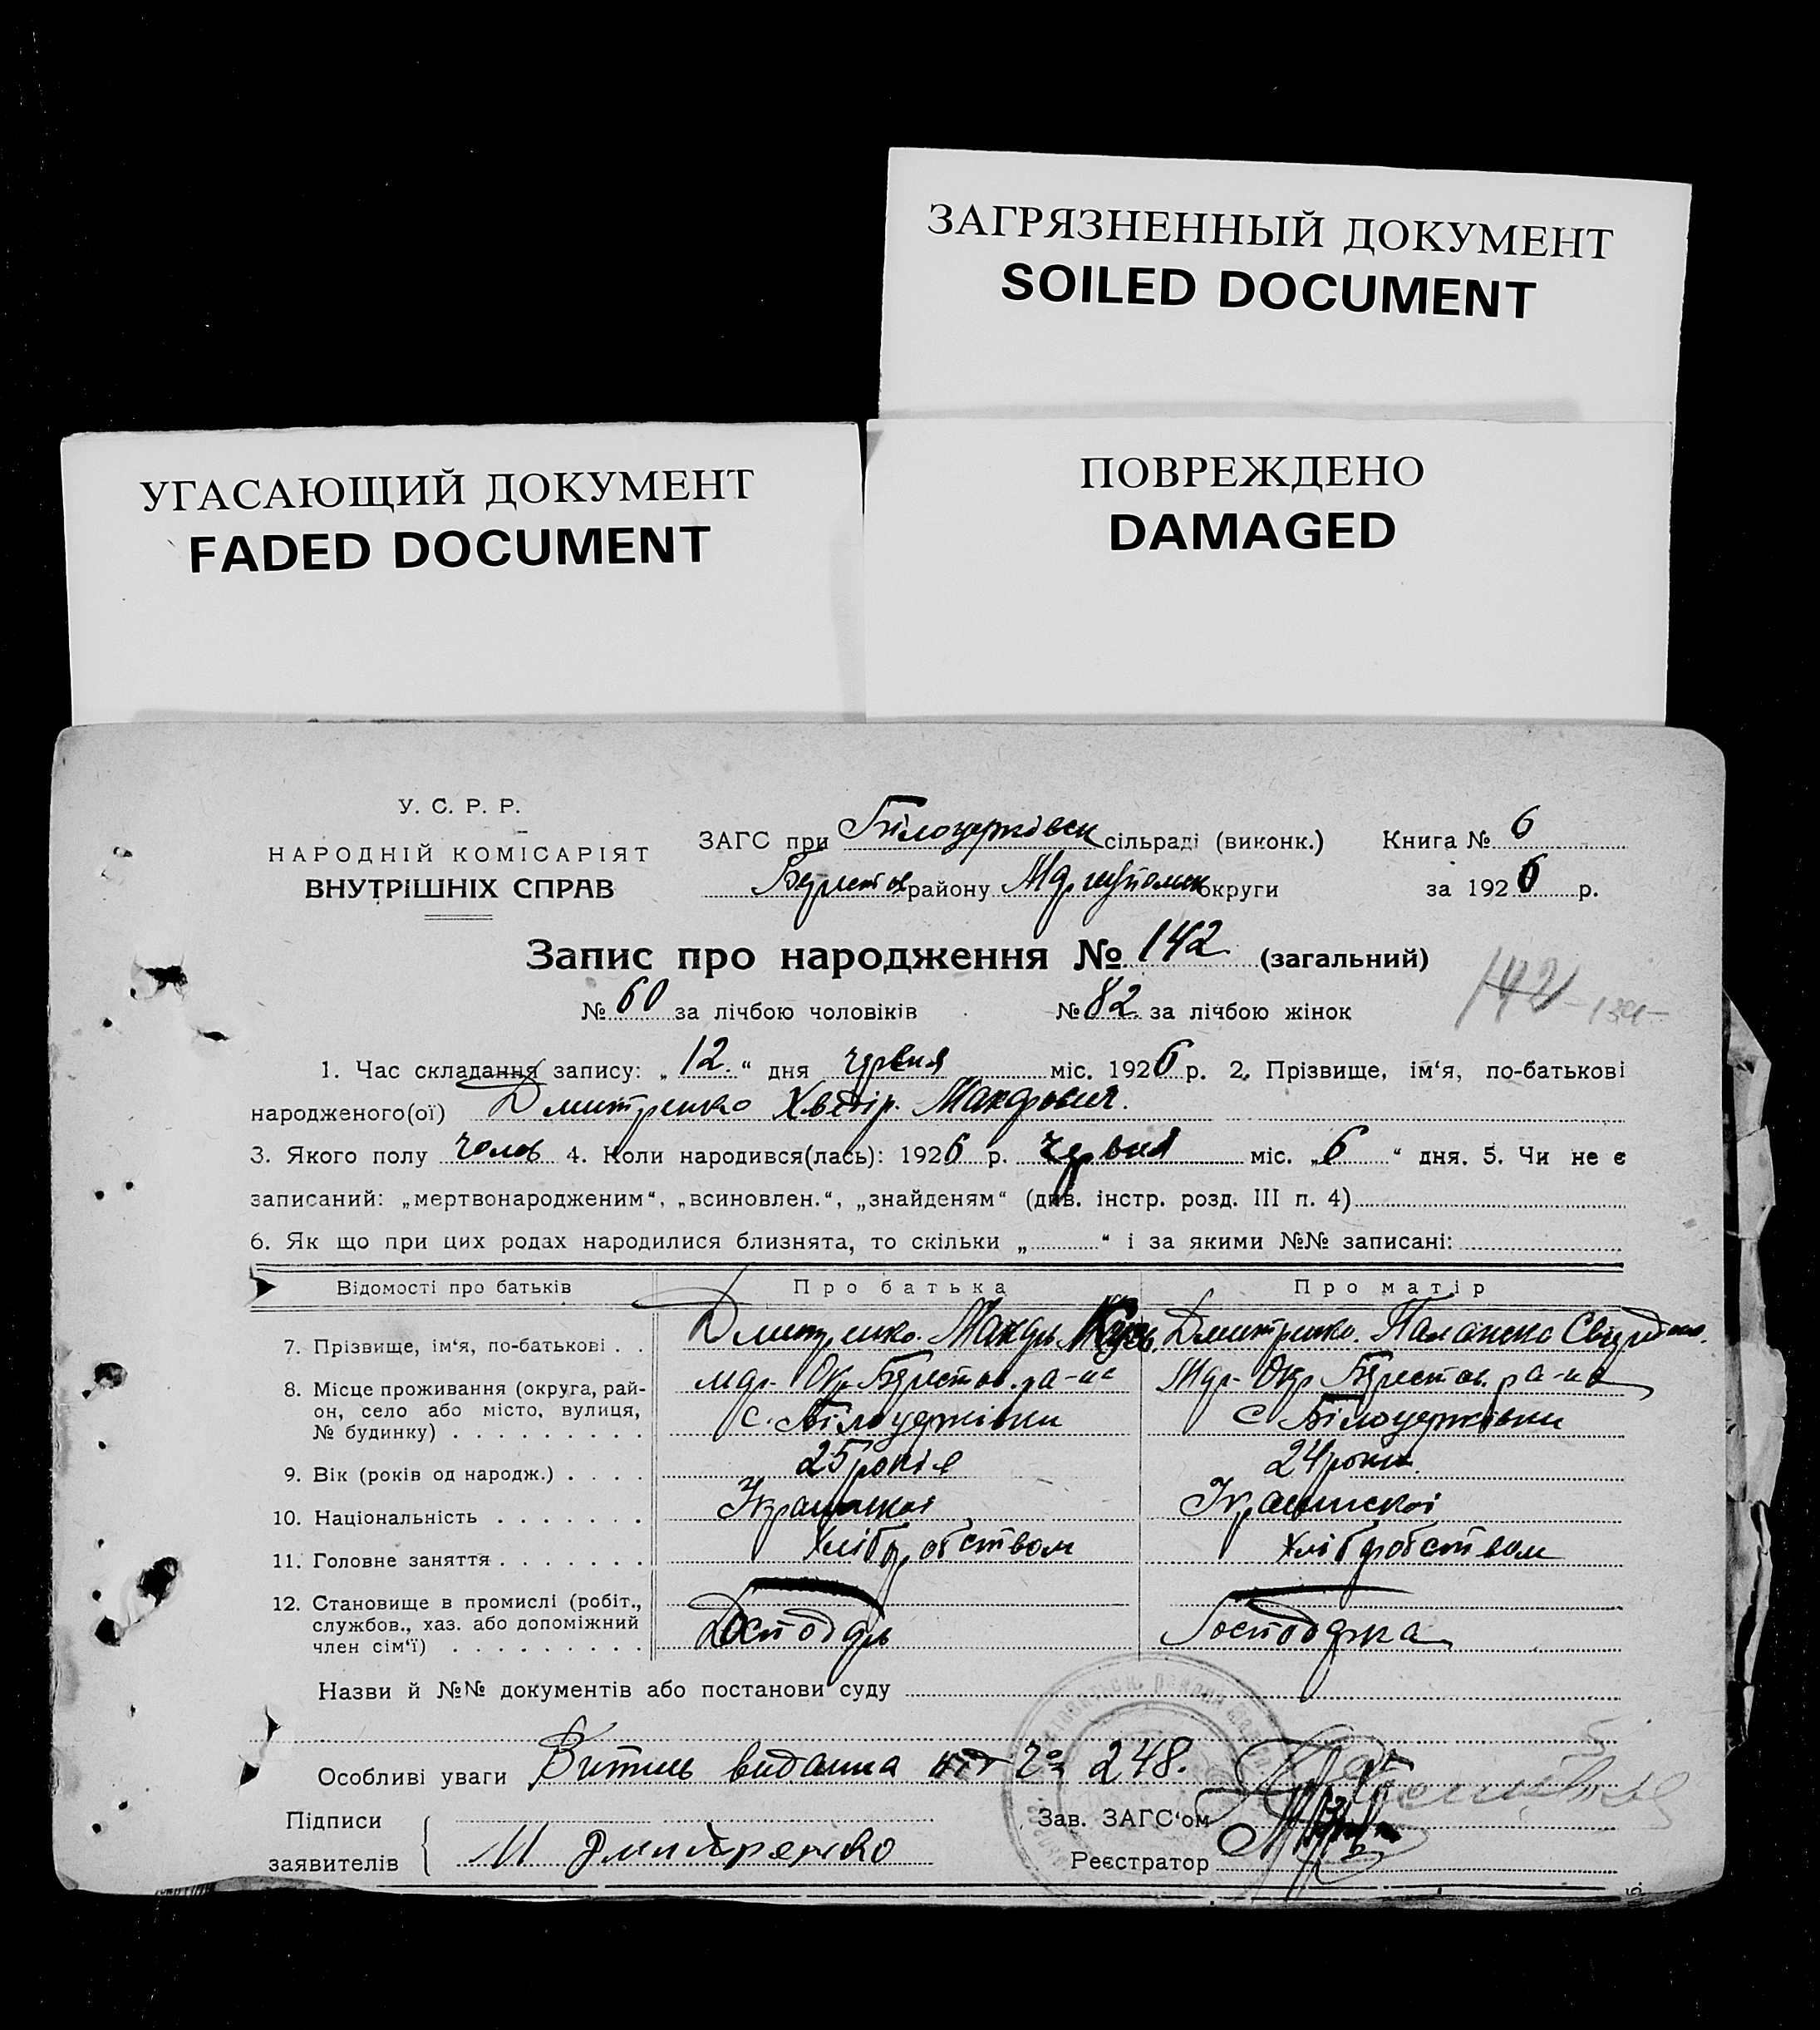 ЗАГРЯЗНЕННЫЙ ДОКУМЕНТ
SOILED DOCUMENT
УГАСАЮЩИЙ ДОКУМЕНТ
FADED DOCUMENT
ПОВРЕЖДЕНО
DAMAGED
У. С. Р. Р.
НАРОДНІЙ КОМІСАРІЯТ
ВНУТРІШНІХ СПРАВ
ЗАГС при Білоцерківск сільраді (виконк.) Книга № 6
Берестов району Маріупольск округи за 1926 р.
Запис про народження № 142 (загальний)
№ 60 за лічбою чоловіків № 82 за лічбою жінок
142
1. Час складання запису: „12.“ дня червня міс. 1926 р. 2. Прізвище, ім‘я, по-батькові
народженого(ої) Дмитренко Хведір. Макарович.
3. Якого полу чолов 4. Коли народився(лась): 1926 р. червня міс. „6“ дня. 5. Чи не є
записаний: „мертвонародженим“, „всиновлен.“, „знайденям“ (див. інстр. розд. III п. 4)
6. Як що при цих родах народилися близнята, то скільки „ “ і за якими №№ записані:
Відомості про батьків Про батька Про матір
7. Прізвище, ім‘я, по-батькові . . Дмитренко. Макарь Дмитренко.
8. Місце проживання (округа, рай- мар. Окр. Берестов. ра-на Мар. Окр. Берестов. ра-на
он, село або місто, вулиця, с. Білоцерківки с Білоцерківки
№ будинку) . . . . . . . . .
9. Вік (років од народж.) . . . . 25 років 24 роки.
10. Національність . . . . . . . Українскоі Українскоі
11. Головне заняття . . . . . . . Хліборобством Хліборобством
12. Становище в промислі (робіт.,
службов., хаз. або допоміжний Господарь Господарка
член сім‘ї) . . . . . . . . .
Назви й №№ документів або постанови суду
Особливі уваги Витись видана 248.
Підписи Зав. ЗАГС‘ом
заявителів М Дмитренко Реєстратор